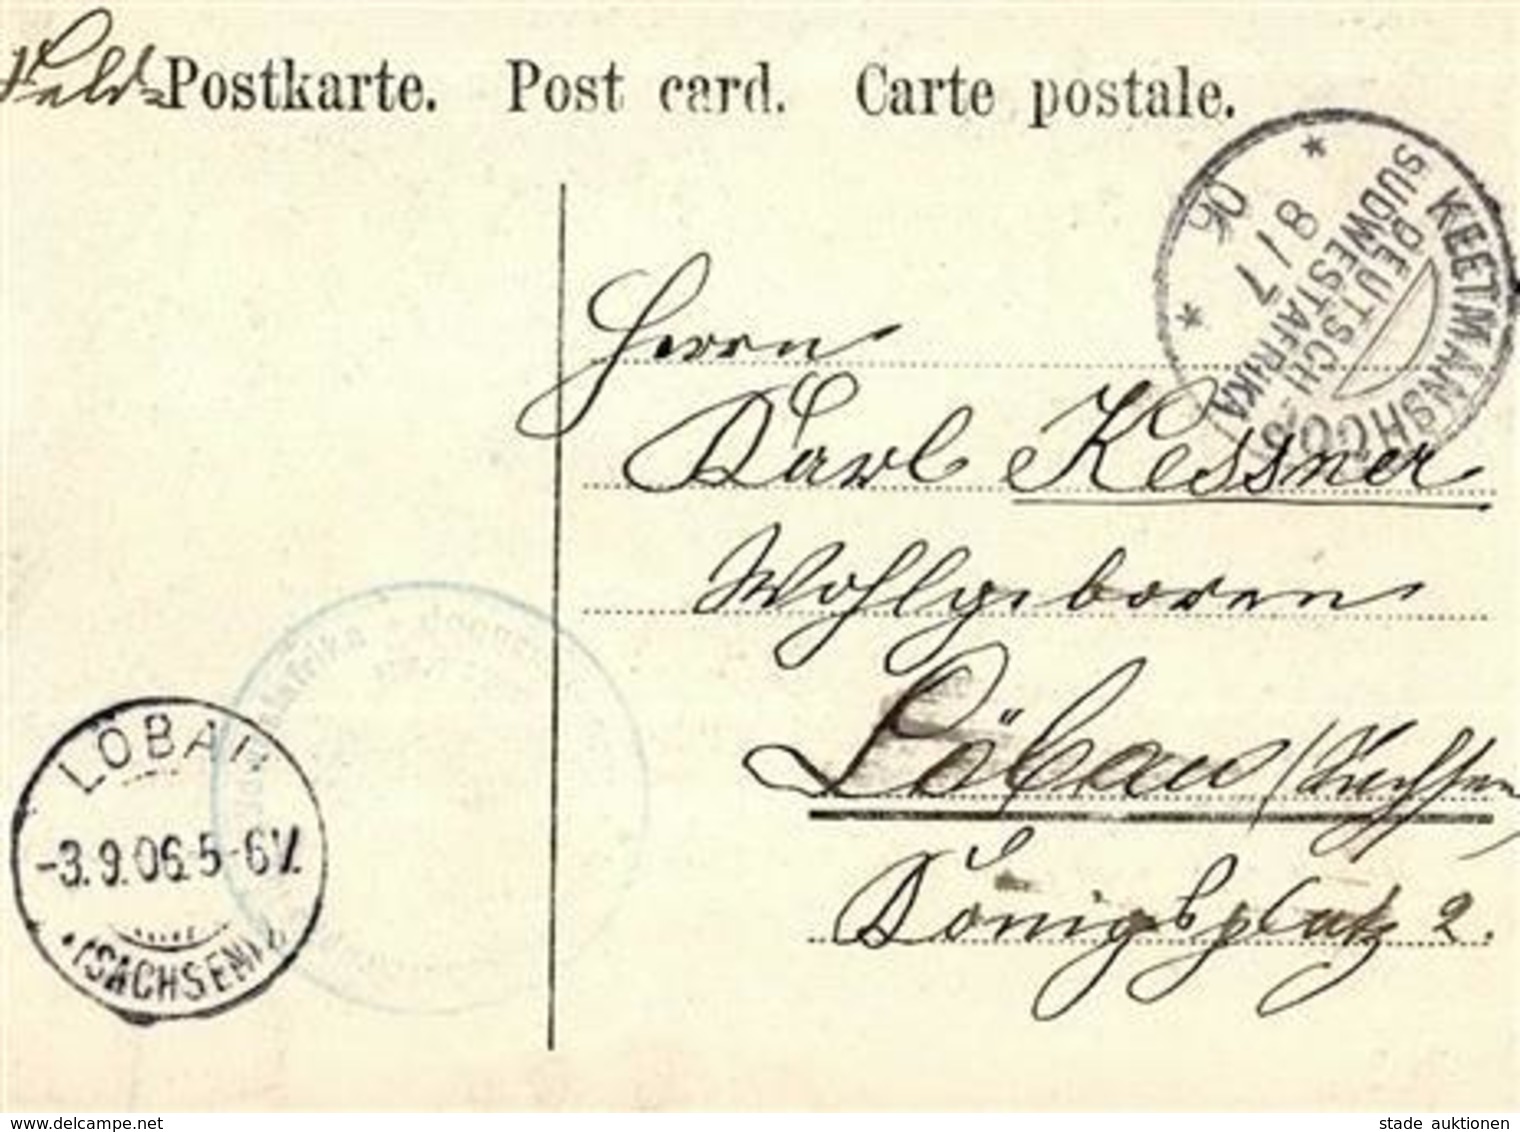 Feld-Postkarte. Post card. Carte postale.
KEETMANSHOOP
DEUTSCH-
SÜDWESTAFRIKA
8/7
06
Herrn
Karl Kessner
Wohlgeboren
Löbau (Sachsen)
Königsplatz 2.
LÖBAU
-3.9.06.5-6V.
(SACHSEN)
www.ansichtskartenversand.com
stade auktionen